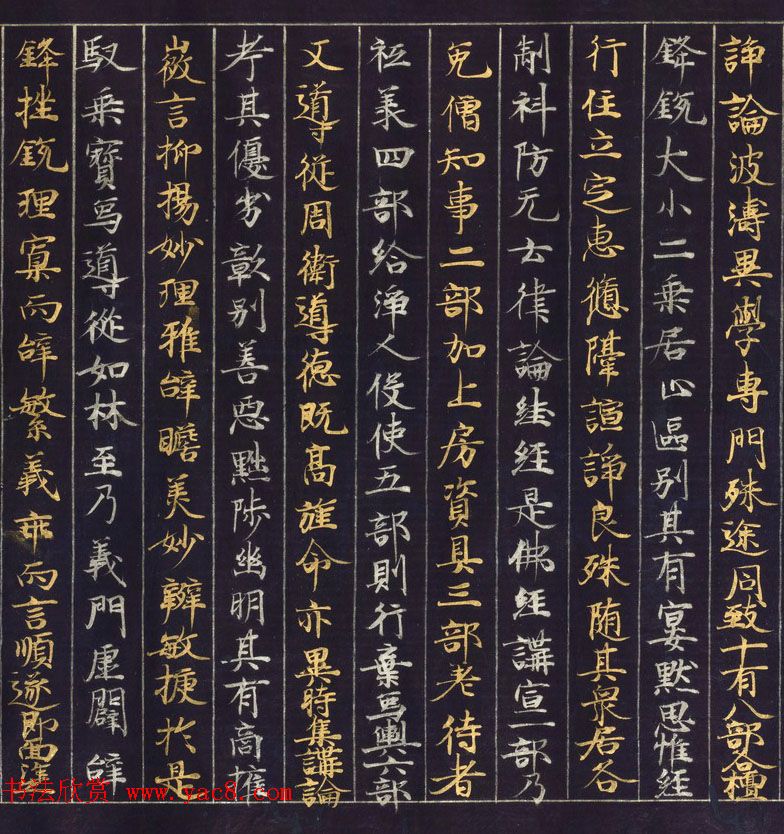 諍論波濤異學專門殊途同致十有八部各擅
鋒鋭大小二乘居止區别其有宴默思惟經
行住立定恵悠隔諠諍良殊随其衆居各
制科防无云律論絓經是佛經講宣一部乃
免僧知事二部加上房資具三部差侍者
祗羕四部給淨人伇使五部則行乗烏輿六部
又導從周衛導徳既髙旌命亦異時集講論
考其優劣彰别善惡黜陟幽明其有商搉
微言抑揚妙理雅辝贍美妙辯敏捷扵是
馭乗寳烏導從如林至乃義門虛闢辝
鋒挫鋭理寡而辝繁義乖而言順遂即面塗
书法欣赏 www.yac8.com